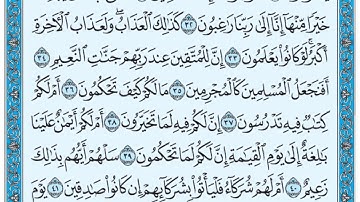 خَيْرًا مِّنْهَآ إِنَّآ إِلَىٰ رَبِّنَا رَٰغِبُونَ ٣٢ كَذَٰلِكَ ٱلْعَذَابُ ۖ وَلَعَذَابُ ٱلْءَاخِرَةِ
أَكْبَرُ ۚ لَوْ كَانُوا۟ يَعْلَمُونَ ٣٣ إِنَّ لِلْمُتَّقِينَ عِندَ رَبِّهِمْ جَنَّٰتِ ٱلنَّعِيمِ ٣٤
أَفَنَجْعَلُ ٱلْمُسْلِمِينَ كَٱلْمُجْرِمِينَ ٣٥ مَا لَكُمْ كَيْفَ تَحْكُمُونَ ٣٦ أَمْ لَكُمْ
كِتَٰبٌ فِيهِ تَدْرُسُونَ ٣٧ إِنَّ لَكُمْ فِيهِ لَمَا تَخَيَّرُونَ ٣٨ أَمْ لَكُمْ أَيْمَٰنٌ عَلَيْنَا
بَٰلِغَةٌ إِلَىٰ يَوْمِ ٱلْقِيَٰمَةِ ۙ إِنَّ لَكُمْ لَمَا تَحْكُمُونَ ٣٩ سَلْهُمْ أَيُّهُم بِذَٰلِكَ
زَعِيمٌ ٤٠ أَمْ لَهُمْ شُرَكَآءُ فَلْيَأْتُوا۟ بِشُرَكَآئِهِمْ إِن كَانُوا۟ صَٰدِقِينَ ٤١ يَوْمَ